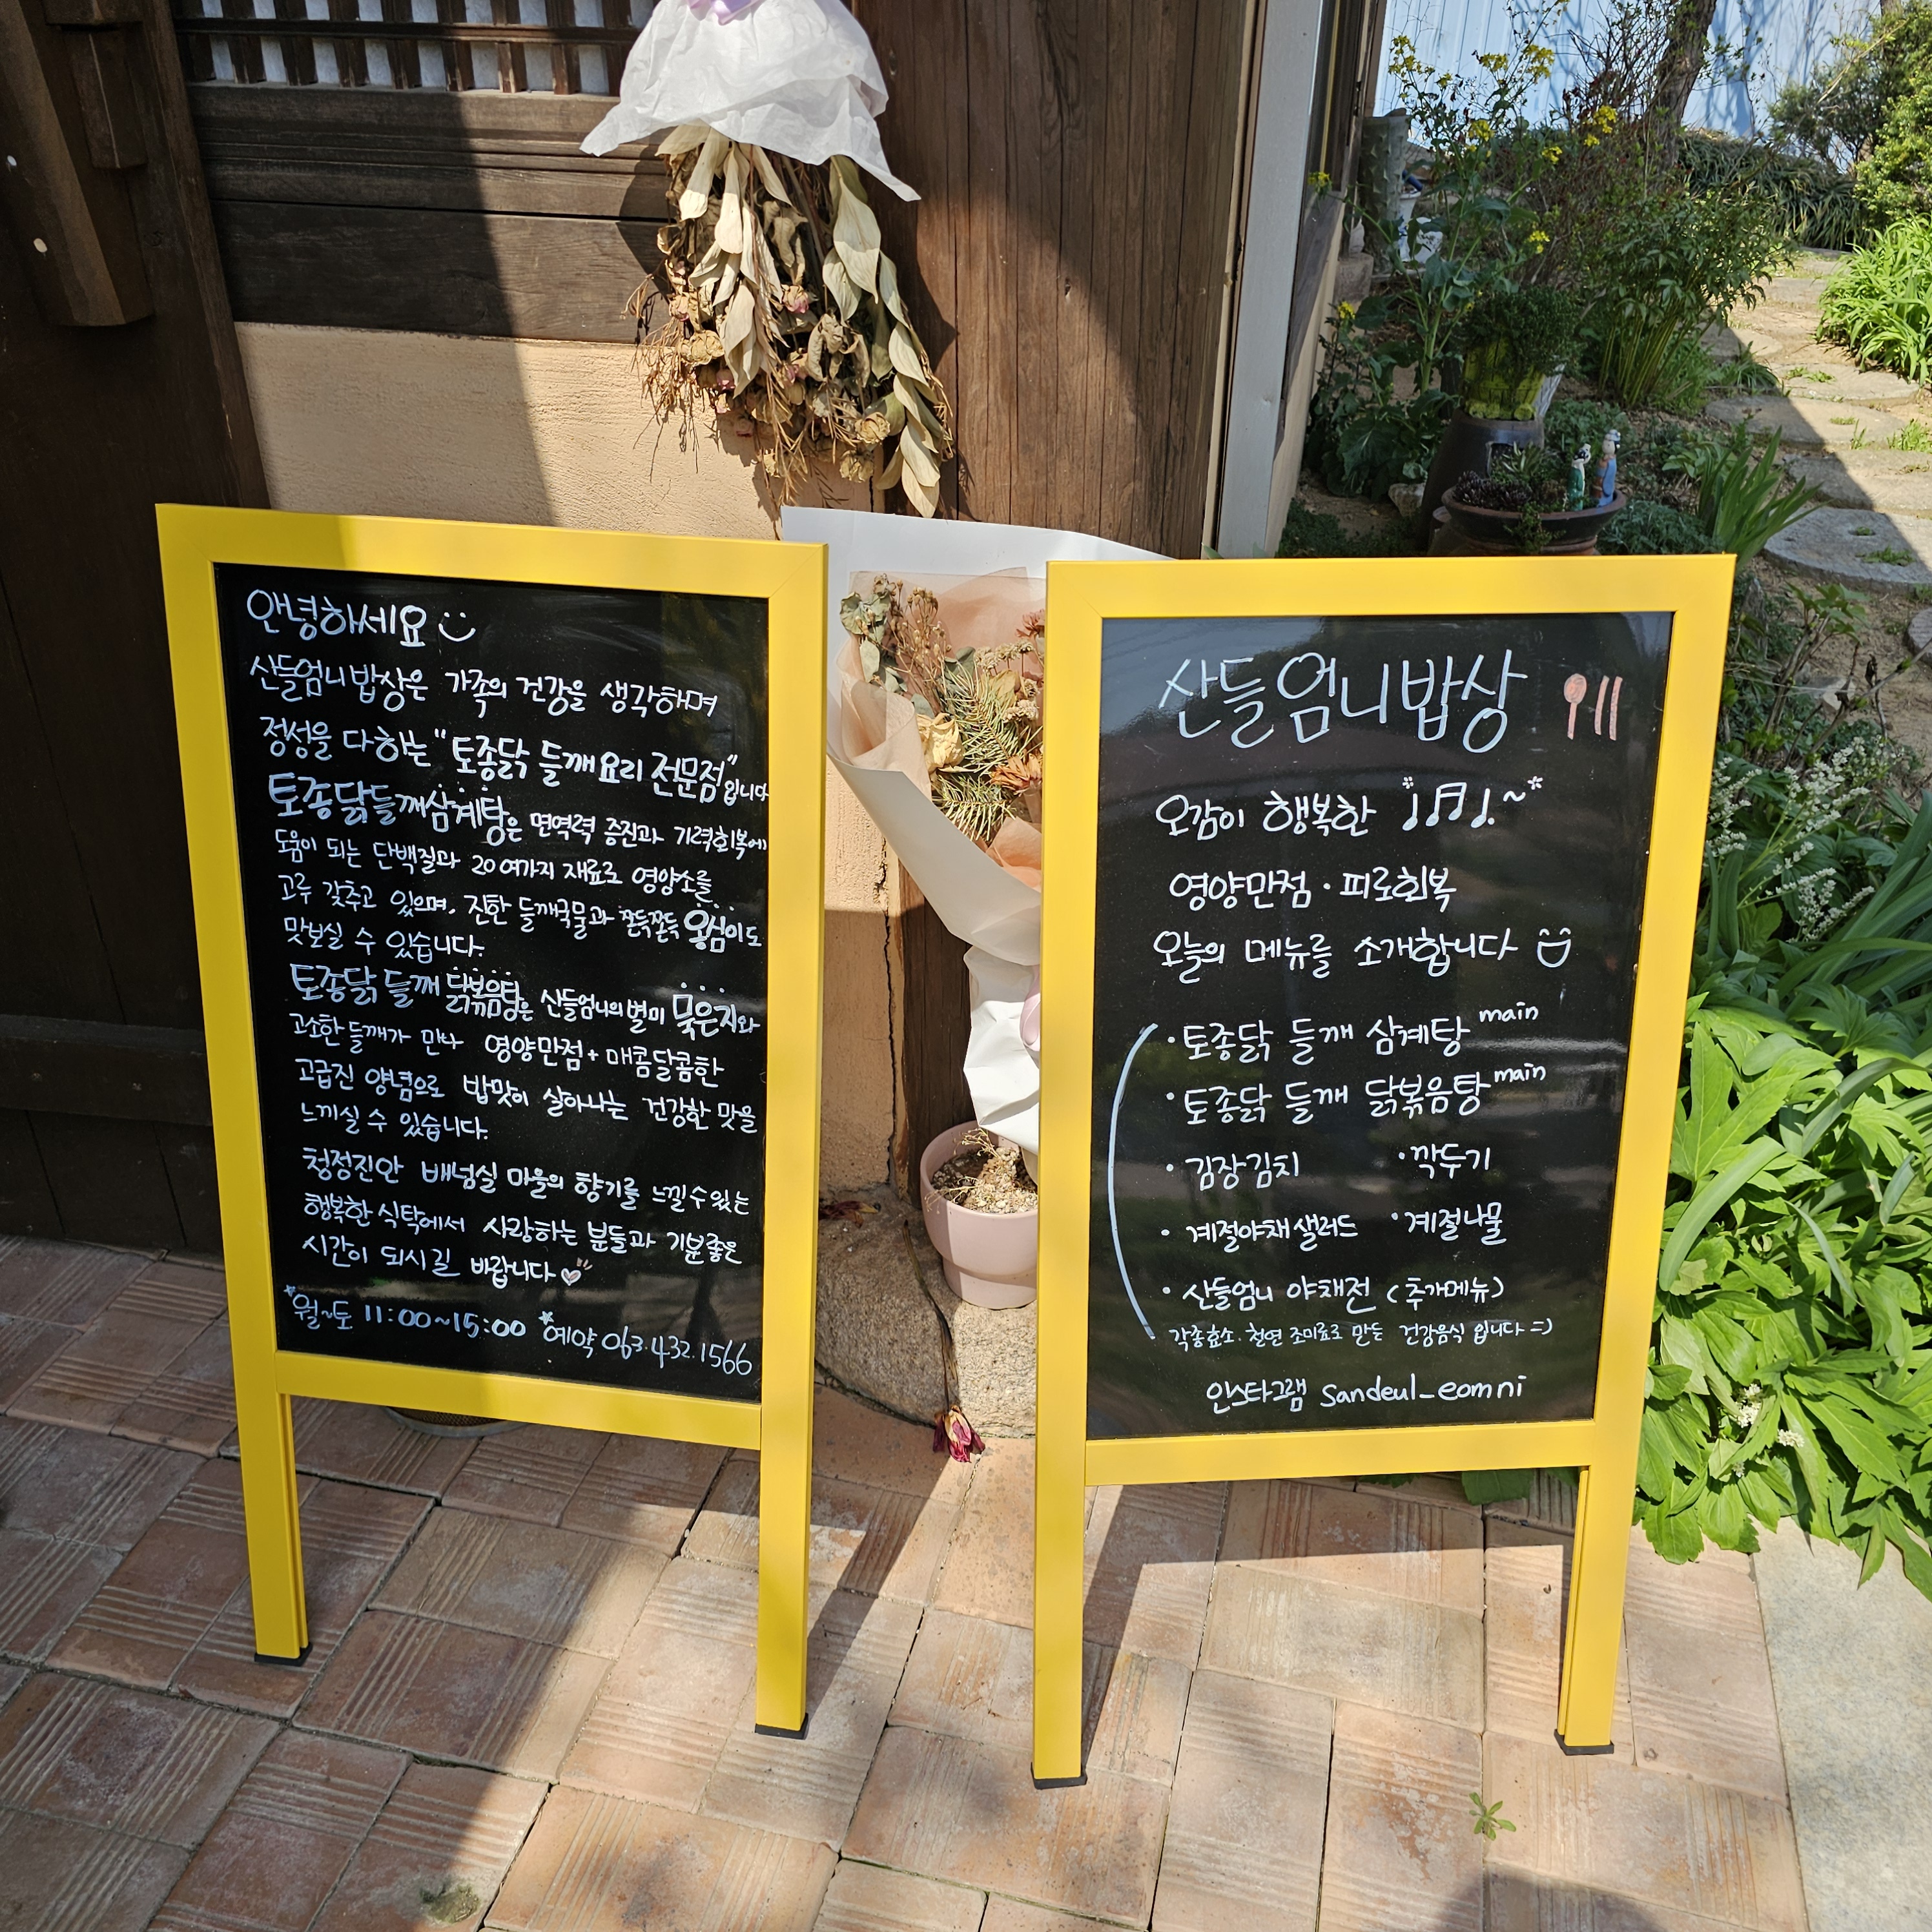 안녕하세요
산들엄니밥상은 가족의 건강을 생각하며
정성을 다하는 "토종닭 들깨요리 전문점"입니다
토종닭들깨삼계탕은 면역력 증진과 기력회복에
도움이 되는 단백질과 20여가지 재료로 영양소를
고루 갖추고 있으며, 진한 들깨국물과 쫀득쫀득 옹심이도
맛보실 수 있습니다.
토종닭 들깨 닭볶음탕은 산들엄니의 별미 묵은지와
고소한 들깨가 만나 영양만점+매콤달콤한
고급진 양념으로 밥맛이 살아나는 건강한 맛을
느끼실 수 있습니다.
청정진안 배넘실 마을의 향기를 느낄수있는
행복한 식탁에서 사랑하는 분들과 기분좋은
시간이 되시길 바랍니다♡
*월~토 11:00~15:00 *예약 063.432.1566
산들엄니밥상
오감이 행복한 *♩♬♩.~*
영양만점·피로회복
오늘의 메뉴를 소개합니다
·토종닭 들깨 삼계탕 main
·토종닭 들깨 닭볶음탕 main
·김장김치 ·깍두기
·계절야채샐러드 ·계절나물
·산들엄니 야채전 (추가메뉴)
각종효소.천연 조미료로 만든 건강음식 입니다 =)
인스타그램 sandeul_eomni